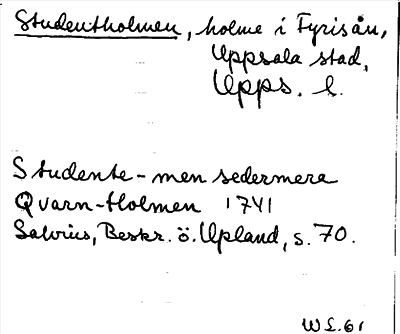 Studentholmen, holme i Fyrisån,
Uppsala stad,
Upps. l.
Studente-men sedermera
Qvarn-Holmen 1741
Salvius, Beskr. ö. Upland, s. 70.
WL. 61